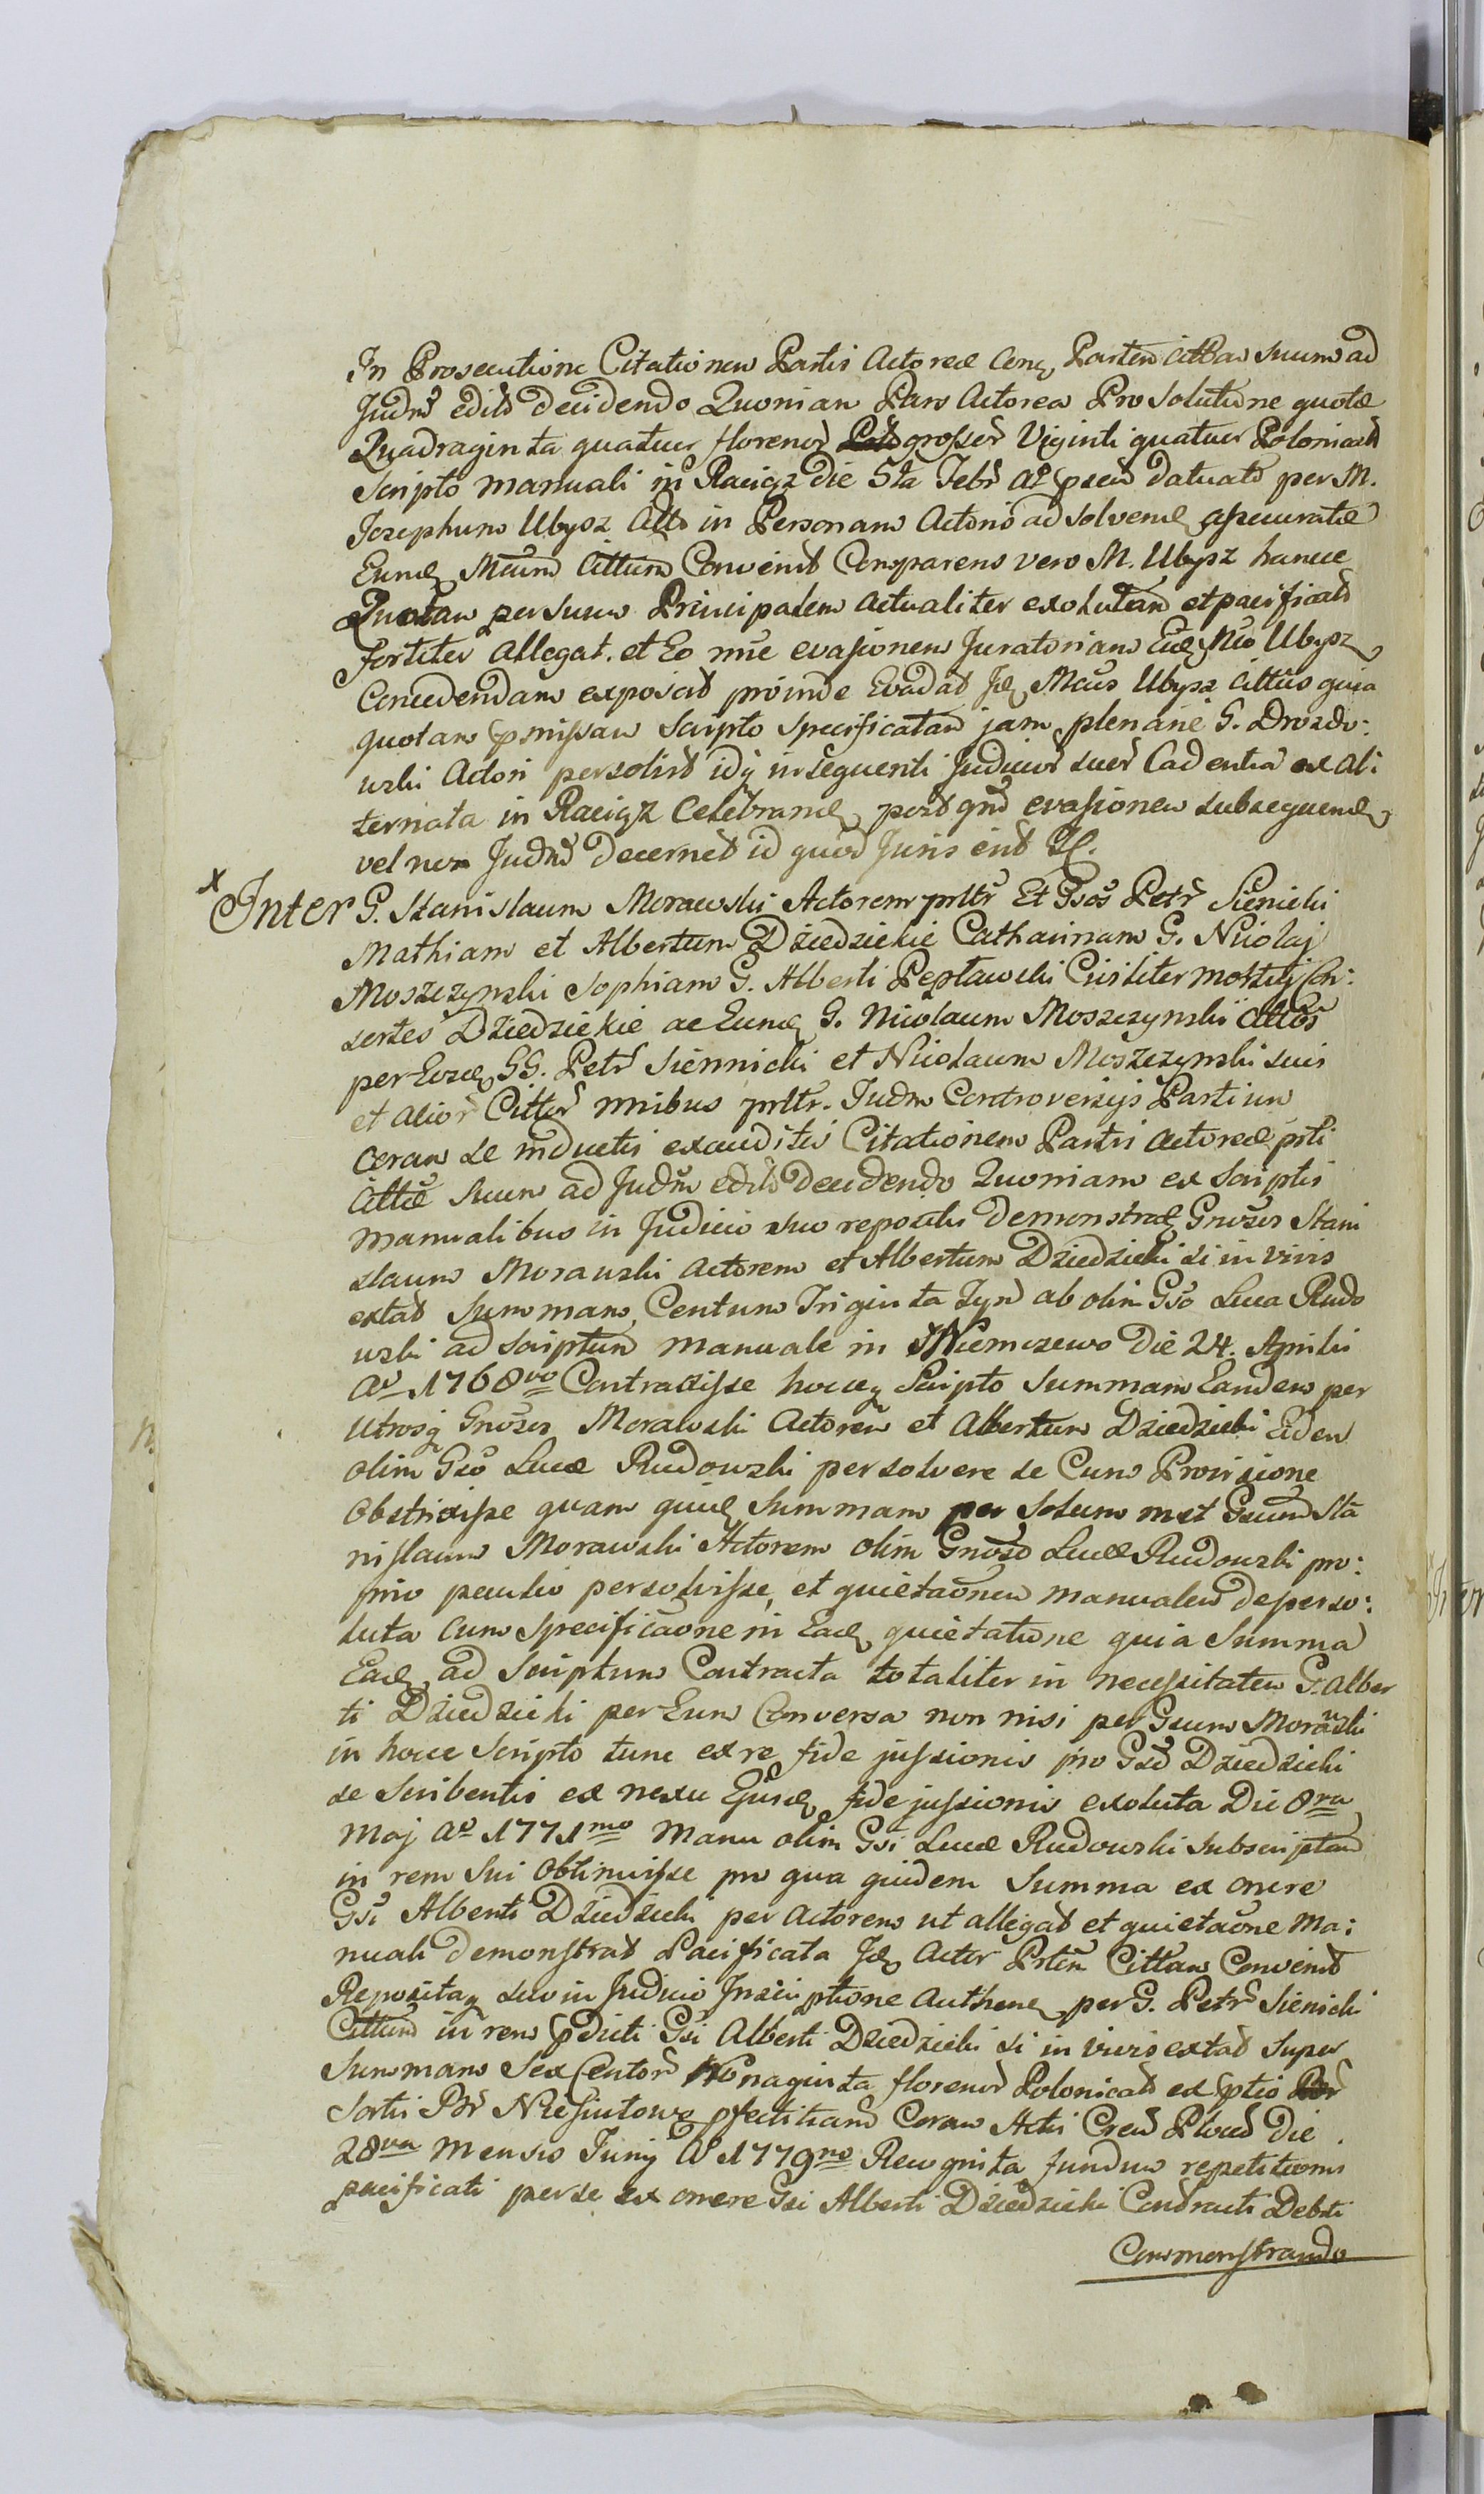 In Prosecutione Citationem Partis Actoreæ Conq Partem Cittam suum ad
Judm̃ edits decidendo Quoniam Pars Actorea Pro solutione quotæ
Quadraginta quatuor florenor̃ grosser̃ Viginti quatuor Polonical̃
Scripto manuali in Raciąz die 5ta Febr̃ Aõ datuato per M.
Josephum Ubysz Citto in Personam Actoris ad solvend assecuratæ
Eund Mcum Cittum Convenit Comparens vero M. Ubysz hancce
Quotam per suum Principalem actualiter exolutam et pacificatã
fortiter Allegat. et Eo nn̄e evasionem Juratoriam Eid Mco Ubysz
Concedendam exposcit proinde Evadat Jd Mcus Ubysz Cittus quia
quotam pmissam Scripto specificatam jam plenarie G. Drozdo:
wski Actori persolvit idq in sequenti Judicior̃ suor̃ Cadentia ex Al:
ternata in Raciąż Celebrand, post qm̃ evasionem subsequend,
vel non Judm̃ decernet id quod Juris erit &c.
x Inter G. Stanislaum Morawski Actorem prltr̃ Et Gsos Petr̃ Sienicki
Mathiam et Albertum Dziedzickie Catharinam G. Nicolaj
Moszczynski Sophiam G. Alberti Pepławski Civiliter mortuj Con:
sortes Dziedzickie ac Eund G. Nicolaum Moszczynski Cittos
per Eosd GG. Petr̃ Siennicki et Nicolaum Moszczynski suis
et alior̃ Cittor̃ nnibus prltr. Judm Controversijs Partium
coram se inductis exauditis Citationem Partis Actoreæ prti
Cittæ suum ad Judm̃ edits decidendo Quoniam ex Scriptis
manualibus in Judicio suo repositis demonstrat Gnosus Stani
slaum Morawski Actorem et Albertum Dziedzicki si in vivis
extat Summam Centum Triginta Tynf ab olim Gso Luca Rudo
wski ad Scriptum manuale in Niemczewo Die 24. Aprilis
Aõ 1768vo Contraxisse hocceq Scripto Summam Eandem per
Utrosq Gnosos Morawski Actorem et Albertum Dziedzicki Eidem
olim Gso Lucæ Rudowski persolvere se Cum Provisione
Obstrixisse quam quid Summam per Solum met Gsum Sta
nislaum Morawski Actorem olim Gnoso Lucæ Rudowski pro:
prio peculio persolvisse, et quietaõnem manualem de perso:
luta Cum Specificaõne in Ead quietatione quia Summa
Ead ad Scriptum Contracta totaliter in necessitatem G. Alber
ti Dziedzicki per Eum Conversa non nisi per Gsum Morawski
in hocce Scripto tunc ex re fide jussionis pro Gso Dziedzicki
se Scribentis ex nexu Ejusd fide jussionis exoluta Die 8va
Maj Aõ 1771mo Manu olim Gsi Lucæ Rudowski Subscriptam
in rem Sui Obtinuisse pro qua quidem Summa ex onere
Gsi Alberti Dziedzicki per Actorem ut allegat et quietaõne Ma:
nuali demonstrat Pacificata Jd Actor Prtem Cittam Convenit
Repositaq suo in Judicio Inscriptione Authend per G. Petr̃ Sienicki
Cittum in rem pdicti Gsi Alberti Dziedzicki si in vivis extat Super
Summam Sex Centor̃ Nonaginta florenor̃ Polonical̃ ex ptio
Sortis Niesiutowo Coram Actis Die
28va Mensis Junij Aõ 1779no Recognita fundum repetitionis
pacificati per se ex onere Gsi Alberti Dziedzicki Contracti Debiti
Commonstrando